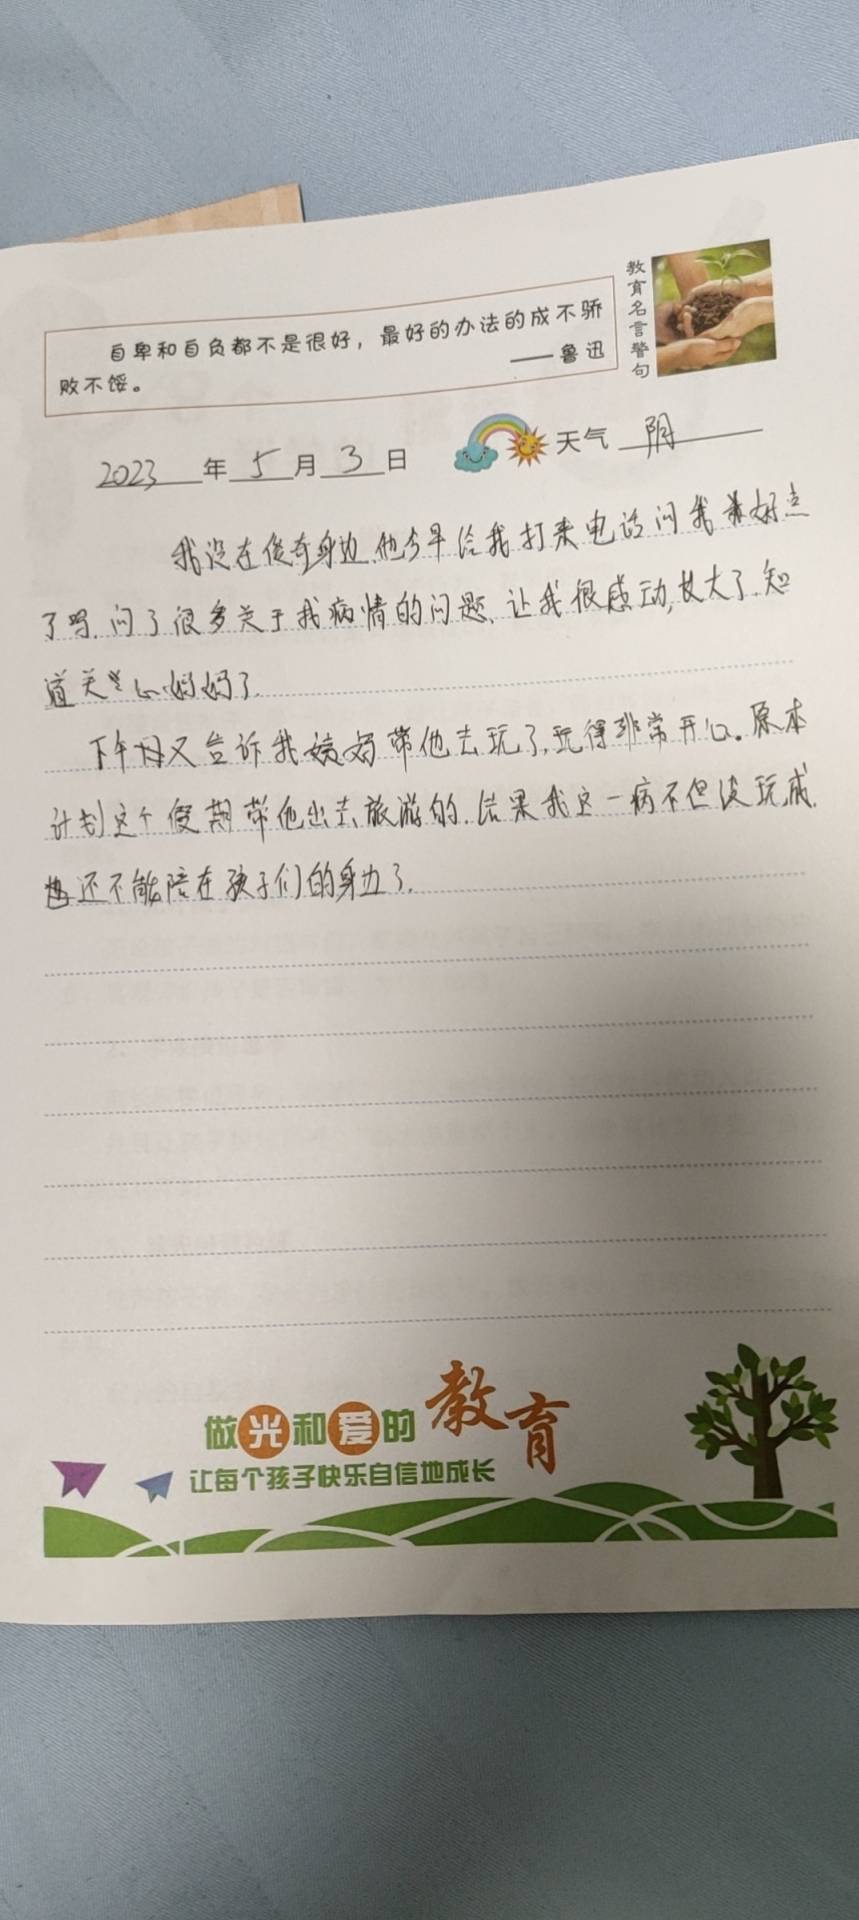 教育名言警句
自卑和自负都不是很好，最好的办法的成不骄
败不馁。
——鲁迅
2023年5月3日 天气 阴
我没在俊奇身边,他今早给我打来电话问我好点
了吗,问了很多关于我病情的问题、让我很感动,长大了.知
道关心妈妈了.
下午又告诉我姨妈带他去玩了,玩得非常开心。原本
计划这个假期带他出去旅游的.结果我这一病不但没玩成.
还不能陪在孩子们的身边了.
做光和爱的教育
让每个孩子快乐自信地成长